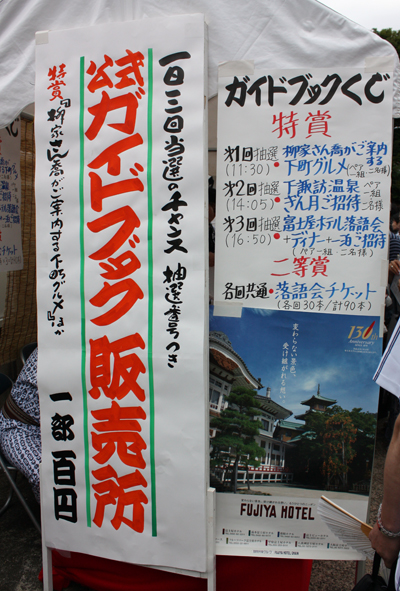 一日三回当選のチャンス 抽選番号つき
公式ガイドブック販売所
特賞『柳家さん喬がご案内する下町グルメ』ほか
一部百円
ガイドブックくじ
特賞
第1回抽選 (11:30)・柳家さん喬がご案内する下町グルメ(ペア一組 二名様)
第2回抽選 (14:05)・下諏訪温泉ざん月ご招待(ペア一組 二名様)
第3回抽選 (16:50)・富士屋ホテル落語会+ディナー+一泊ご招待
(ペア一組・二名様)
二等賞
各回共通・落語会チケット
(各回30本/計90本)
130
変わらない景色で、
受け継がれる想い。
FUJIYA HOTEL